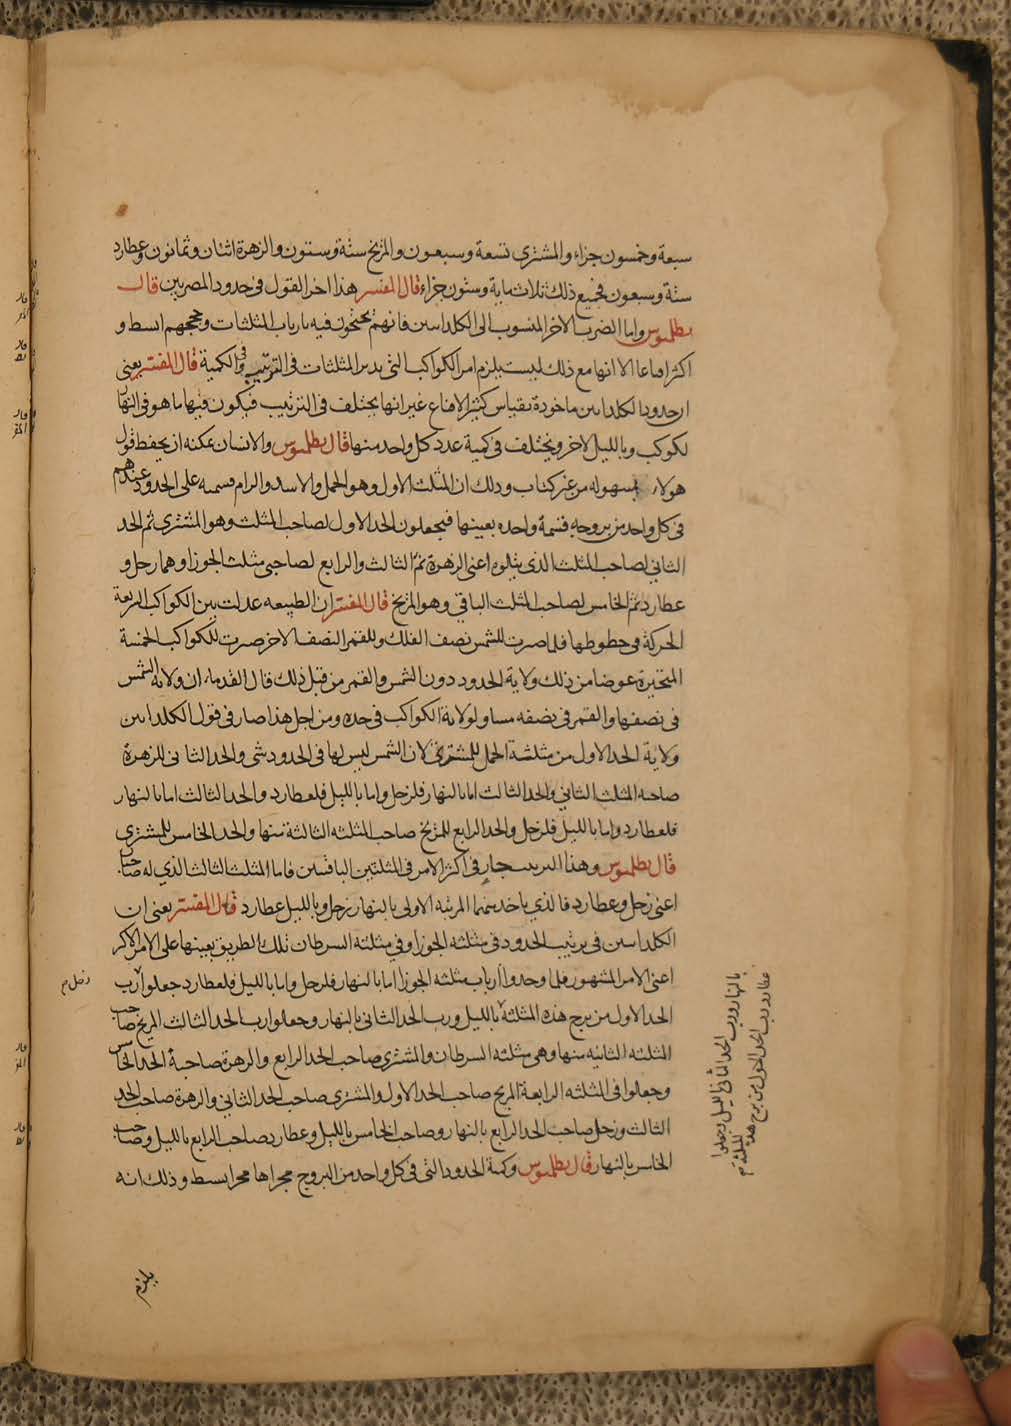 سبعة وخمسون جزاء والمشتري تسعة وسبعون والمريخ ستة وستون والزهرة اثنان وثمانون وعطارد
ستة وسبعون فجميع ذلك ثلاثماية وستون جزاء قال المفسر هذا اخر القول في حدود المصريين قال
بطلميوس واما الضرب الاخر المنسوب الى الكلدانيين فانهم يحتجون فيه بارباب المثلثات وحججهم ابسط و
اكثر اقناعا الا انها مع ذلك ليست يلزم امر الكواكب التي يدبر المثلثات في الترتيب وفي الكمية قال المفسر يعني
ان حدود الكلدانيين ماخوذة بقياس كثير الاقناع غير انها يختلف في الترتيب فيكون فيها ما هو في النهار
لكوكب وبالليل لاخر ويختلف في كمية عدد كل واحد منها قال بطلميوس والانسان يمكنه ان يحفظ قول
هولاء بسهوله من غير كتاب وذلك ان المثلث الاول وهو الحمل والاسد والرام قسمه على الحدود عندهم
في كل واحد من بروجه قسمة واحده بعينها فيجعلون الحد الاول لصاحب المثلث وهو المشتري ثم الحد
الثاني لصاحب المثلث الذي يتلوه اعني الزهرة ثم الثالث والرابع لصاحبي مثلث الجوزا وهما زحل و
عطارد ثم الخامس لصاحب المثلث الباقي وهو المريخ قال المفسر ان الطبيعه عدلت بين الكواكب السريعة
الحركة في حظوظها فلما صرت للشمس نصف الفلك وللقمر النصف الاخر صرت للكواكب الخمسة
المتحيرة عوضا من ذلك ولاية الحدود دون الشمس والقمر من قبل ذلك قال القدماء ان ولاية الشمس
في نصفها والقمر في نصفه مساو لولاية الكواكب في حده ومن اجل هذا صار في قول الكلدانيين
ولاية الحد الاول من مثلثة الحمل للمشتري لان الشمس ليس لها في الحدود شي والحد الثاني للزهرة
صاحبه المثلث الثاني والحد الثالث اما بالنهار فلزحل واما بالليل فلعطارد والحد الثالث اما بالنهار
فلعطارد واما بالليل فلزحل والحد الرابع للمريخ صاحب المثلثه الثالثة منها والحد الخامس للمشتري
قال بطلميوس وهذا الترتيب جار في اكثر الامر في المثلثين الباقيين فاما المثلث الثالث الذي له صاحبان
اعني زحل وعطارد فالذي ياخذ منهما المرتبه الاولى بالنهار زحل وبالليل عطارد قال المفسر يعني ان
الكلدانيين في ترتيب الحدود في مثلثه الجوزا وفي مثلثه السرطان تلك الطريق بعينها على الامر الاكثر
اعني الامر المشهور فلما وجدوا ارباب مثلثه الجوزا اما بالنهار فلزحل واما بالليل فلعطارد جعلوا رب
الحد الاول من برج هذه المثلثة بالليل ورب الحد الثاني بالنهار وجعلوا رب الحد الثالث المريخ صاحب
المثلثه الثانيه منها وهي مثلثه السرطان والمشتري صاحب الحد الرابع والزهرة صاحبة الحد الخامس
وجعلوا في المثلثه الرابعة المريخ صاحب الحد الاول والمشتري صاحب الحد الثاني والزهرة صاحب الحد
الثالث وزحل صاحب الحد الرابع بالنهار وصاحب الخامس بالليل وعطارد صاحب الرابع بالليل وصاحب
الخامس بالنهار قال بطلميوس وكمية الحدود التي في كل واحد من البروج مجراها مجرا بسيط وذلك انه
زحل م
بالنهار ورب الحد الثاني بالليل وجعلوا
عطارد رب الحد الاول من برج هذه
المثلثة م
يلزم